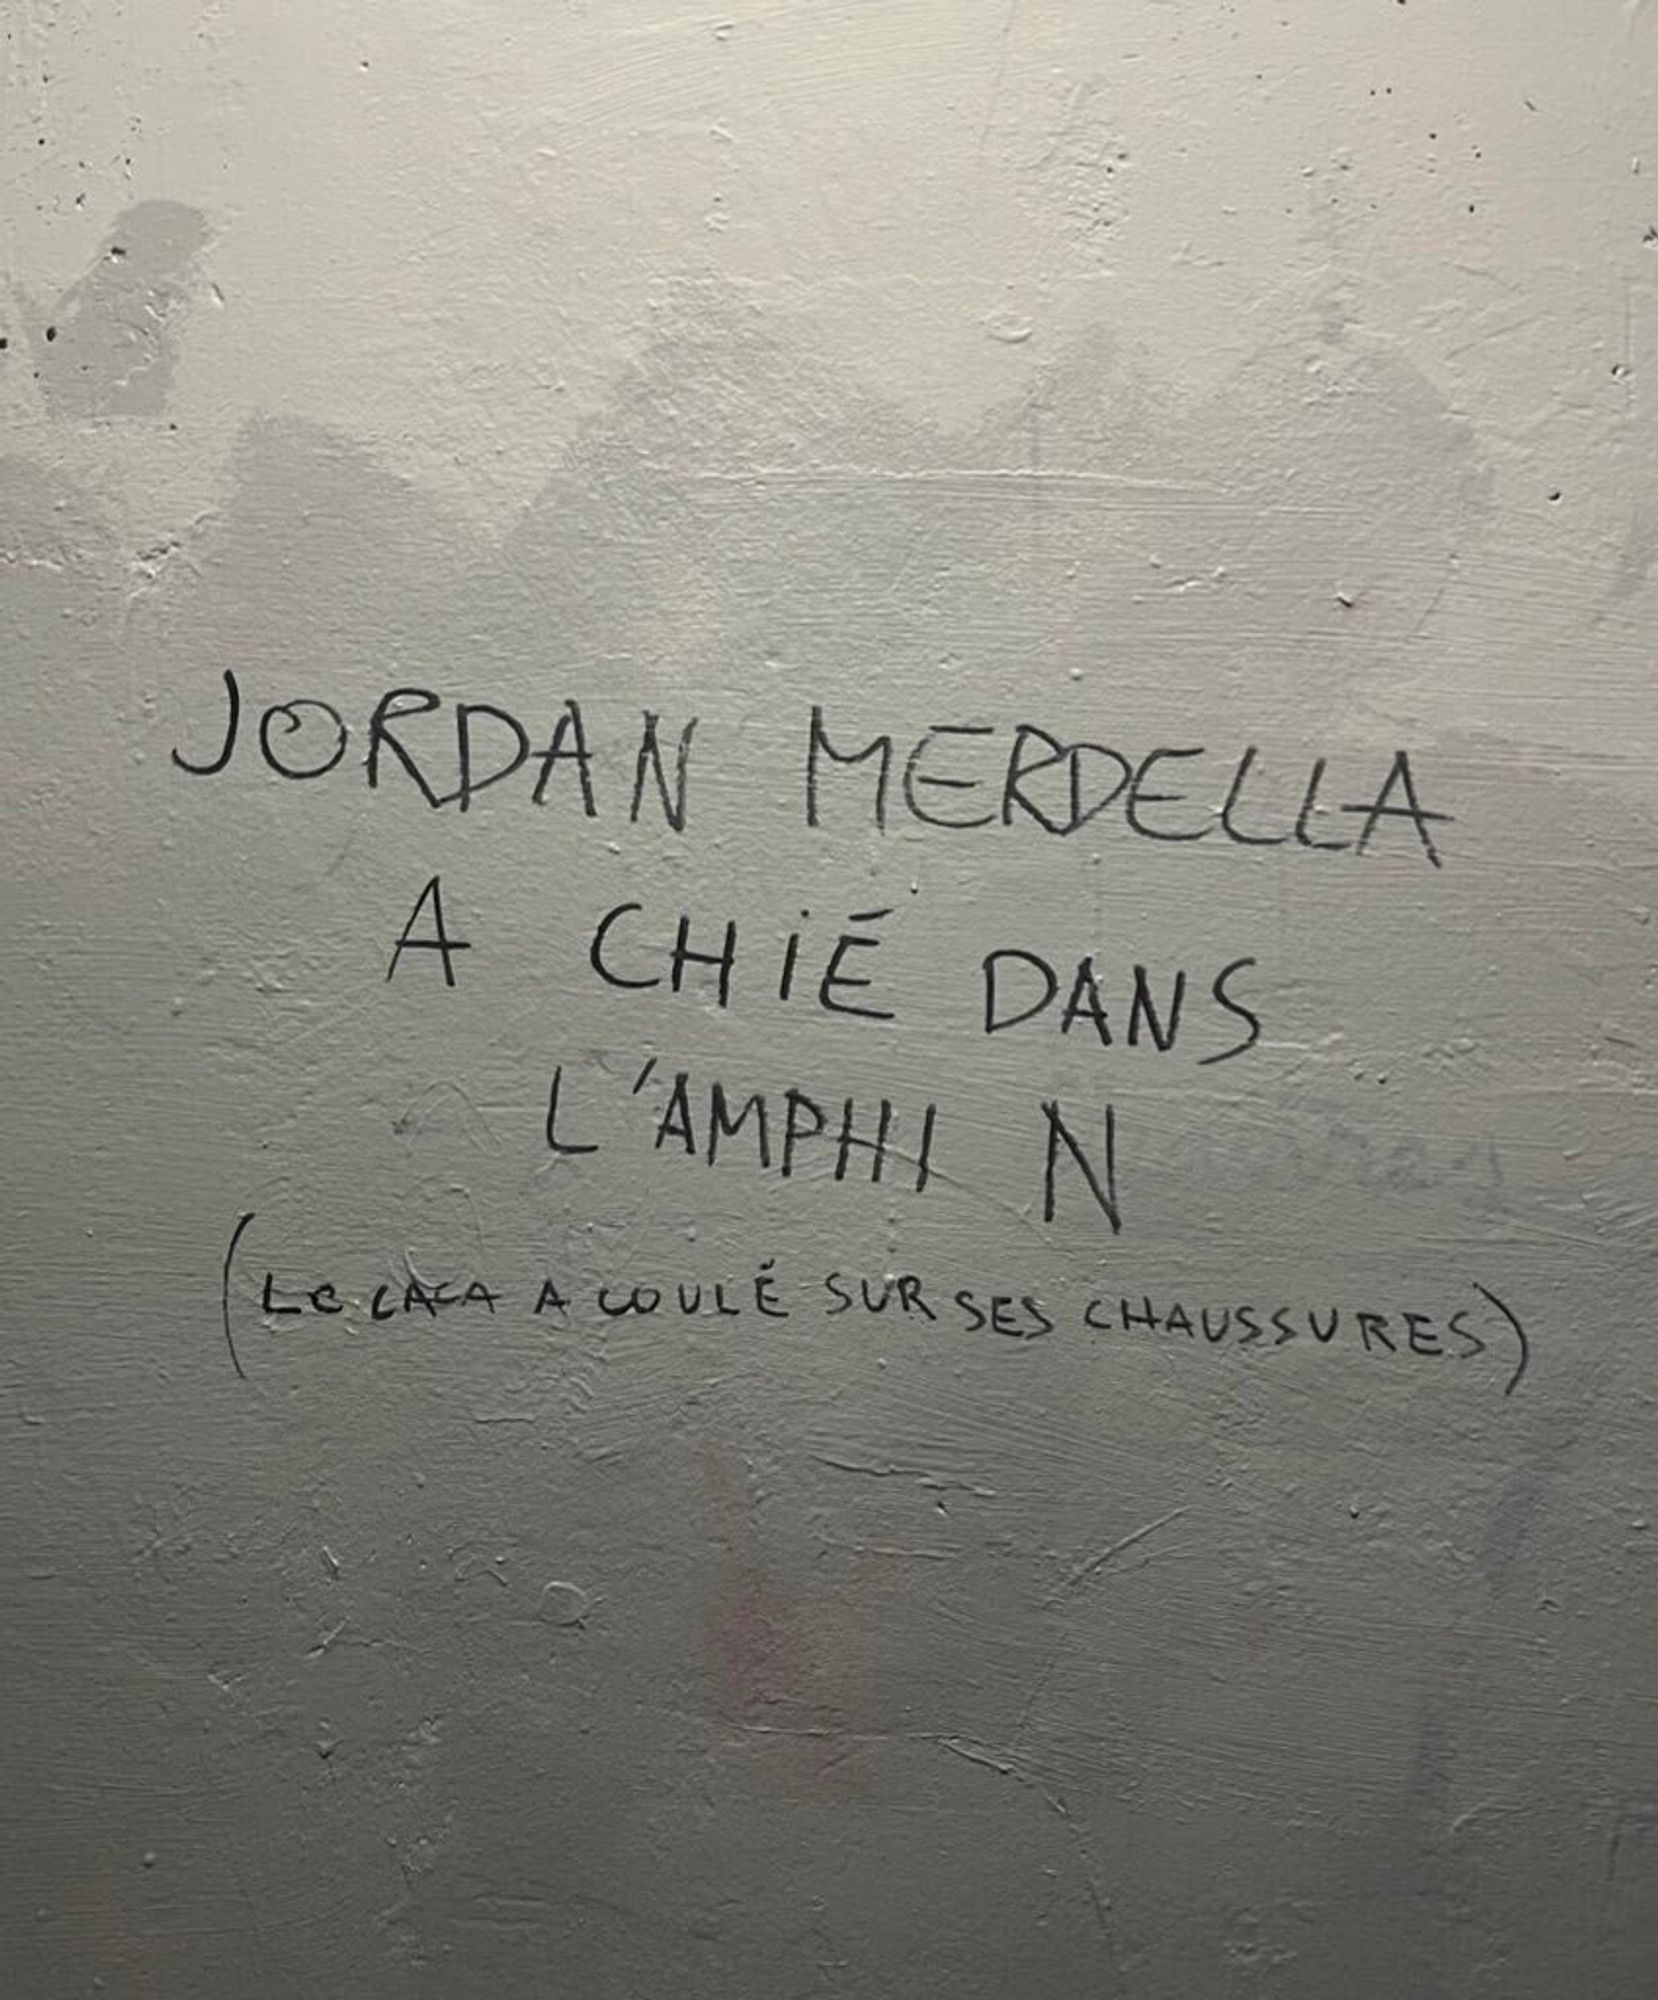 JORDAN MERDELLA
A CHiÉ DANS
L'AMPHI N
(Le CACA A COULÉ SUR SES CHAUSSURES)